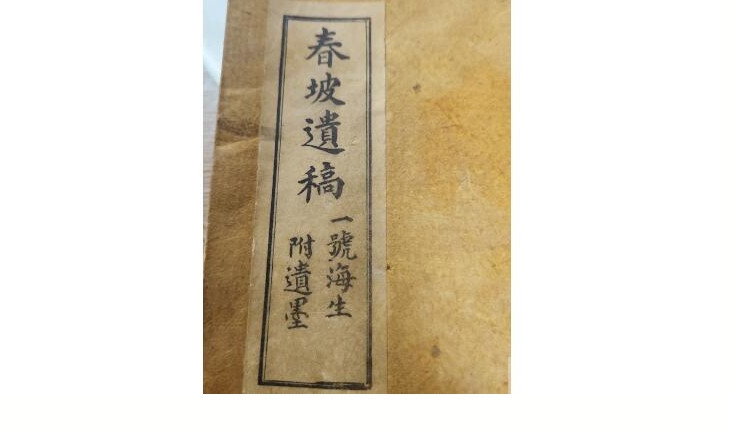 春坡遺稿
一號海生
附遺墨